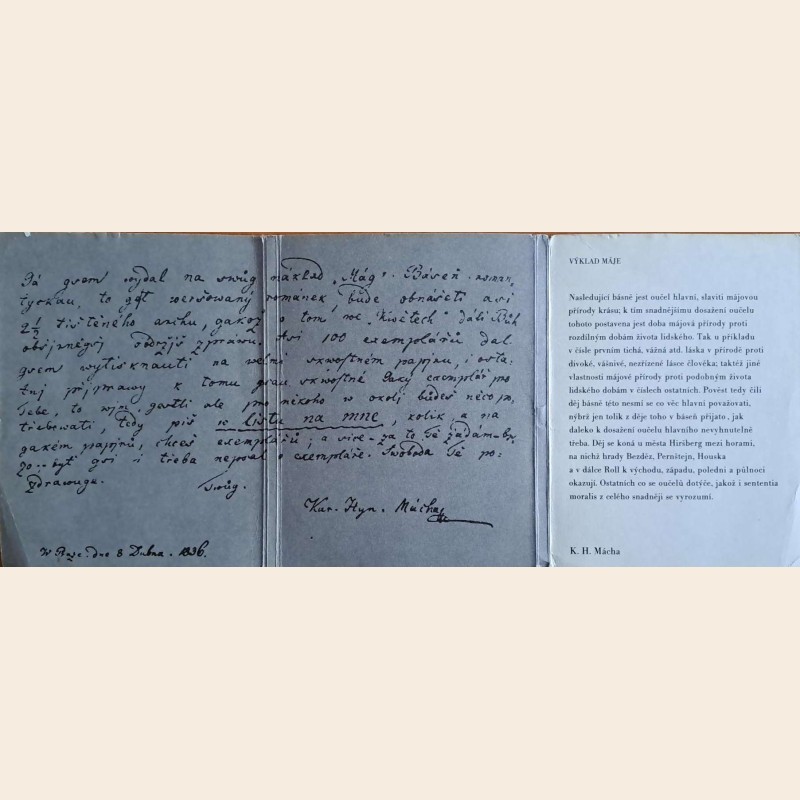 Já gsem wydal na swůg náklad „Mág". Báseň roman,
tyckau, to gest weršowaný románek, bude obnášeti asi
2½ tištěného archu, gakož o tom we „Kwětech" dáli Bůh
obšjrněgšj obdržjš zpráwu. Asi 100 exemplářů dal
gsem wytisknauti na welmi skwostném papjru, i osta-
tnj přjprawy k tomu gsau skwostné
Tobě, to gestli ale pro někoho w okolj budeš něco po,
třebowati, tedy piš w listu na mne, kolik a na
gakém papjru, chceš exemplářů; a wíce - za to Tě žádám - by
byť gsi i třeba neposlal exempláře. Swoboda Tě po-
zdrawuge. Twůg.
Kar. Hyn. Mácha
W Praze dne 8 Dubna. 1836.
VÝKLAD MÁJE
Následující básně jest oučel hlavní, slaviti májovou
přírody krásu; k tím snadnějšímu dosažení oučelu
tohoto postavena jest doba májová přírody proti
rozdílným dobám života lidského. Tak u příkladu
v čísle prvním tichá, vážná atd. láska v přírodě proti
divoké, vášnivé, nezřízené lásce člověka; taktéž jiné
vlastnosti májové přírody proti podobným života
lidského dobám v číslech ostatních. Pověst tedy čili
děj básně této nesmí se co věc hlavní považovati,
nýbrž jen tolik z děje toho v báseň přijato, jak
daleko k dosažení oučelu hlavního nevyhnutelně
třeba. Děj se koná u města Hiršberg mezi horami,
na nichž hrady Bezděz, Pernštejn, Houska
a v dálce Roll k východu, západu, poledni a půlnoci
okazují. Ostatních co se oučelů dotýče, jakož i sententia
moralis z celého snadněji se vyrozumí.
K. H. Mácha